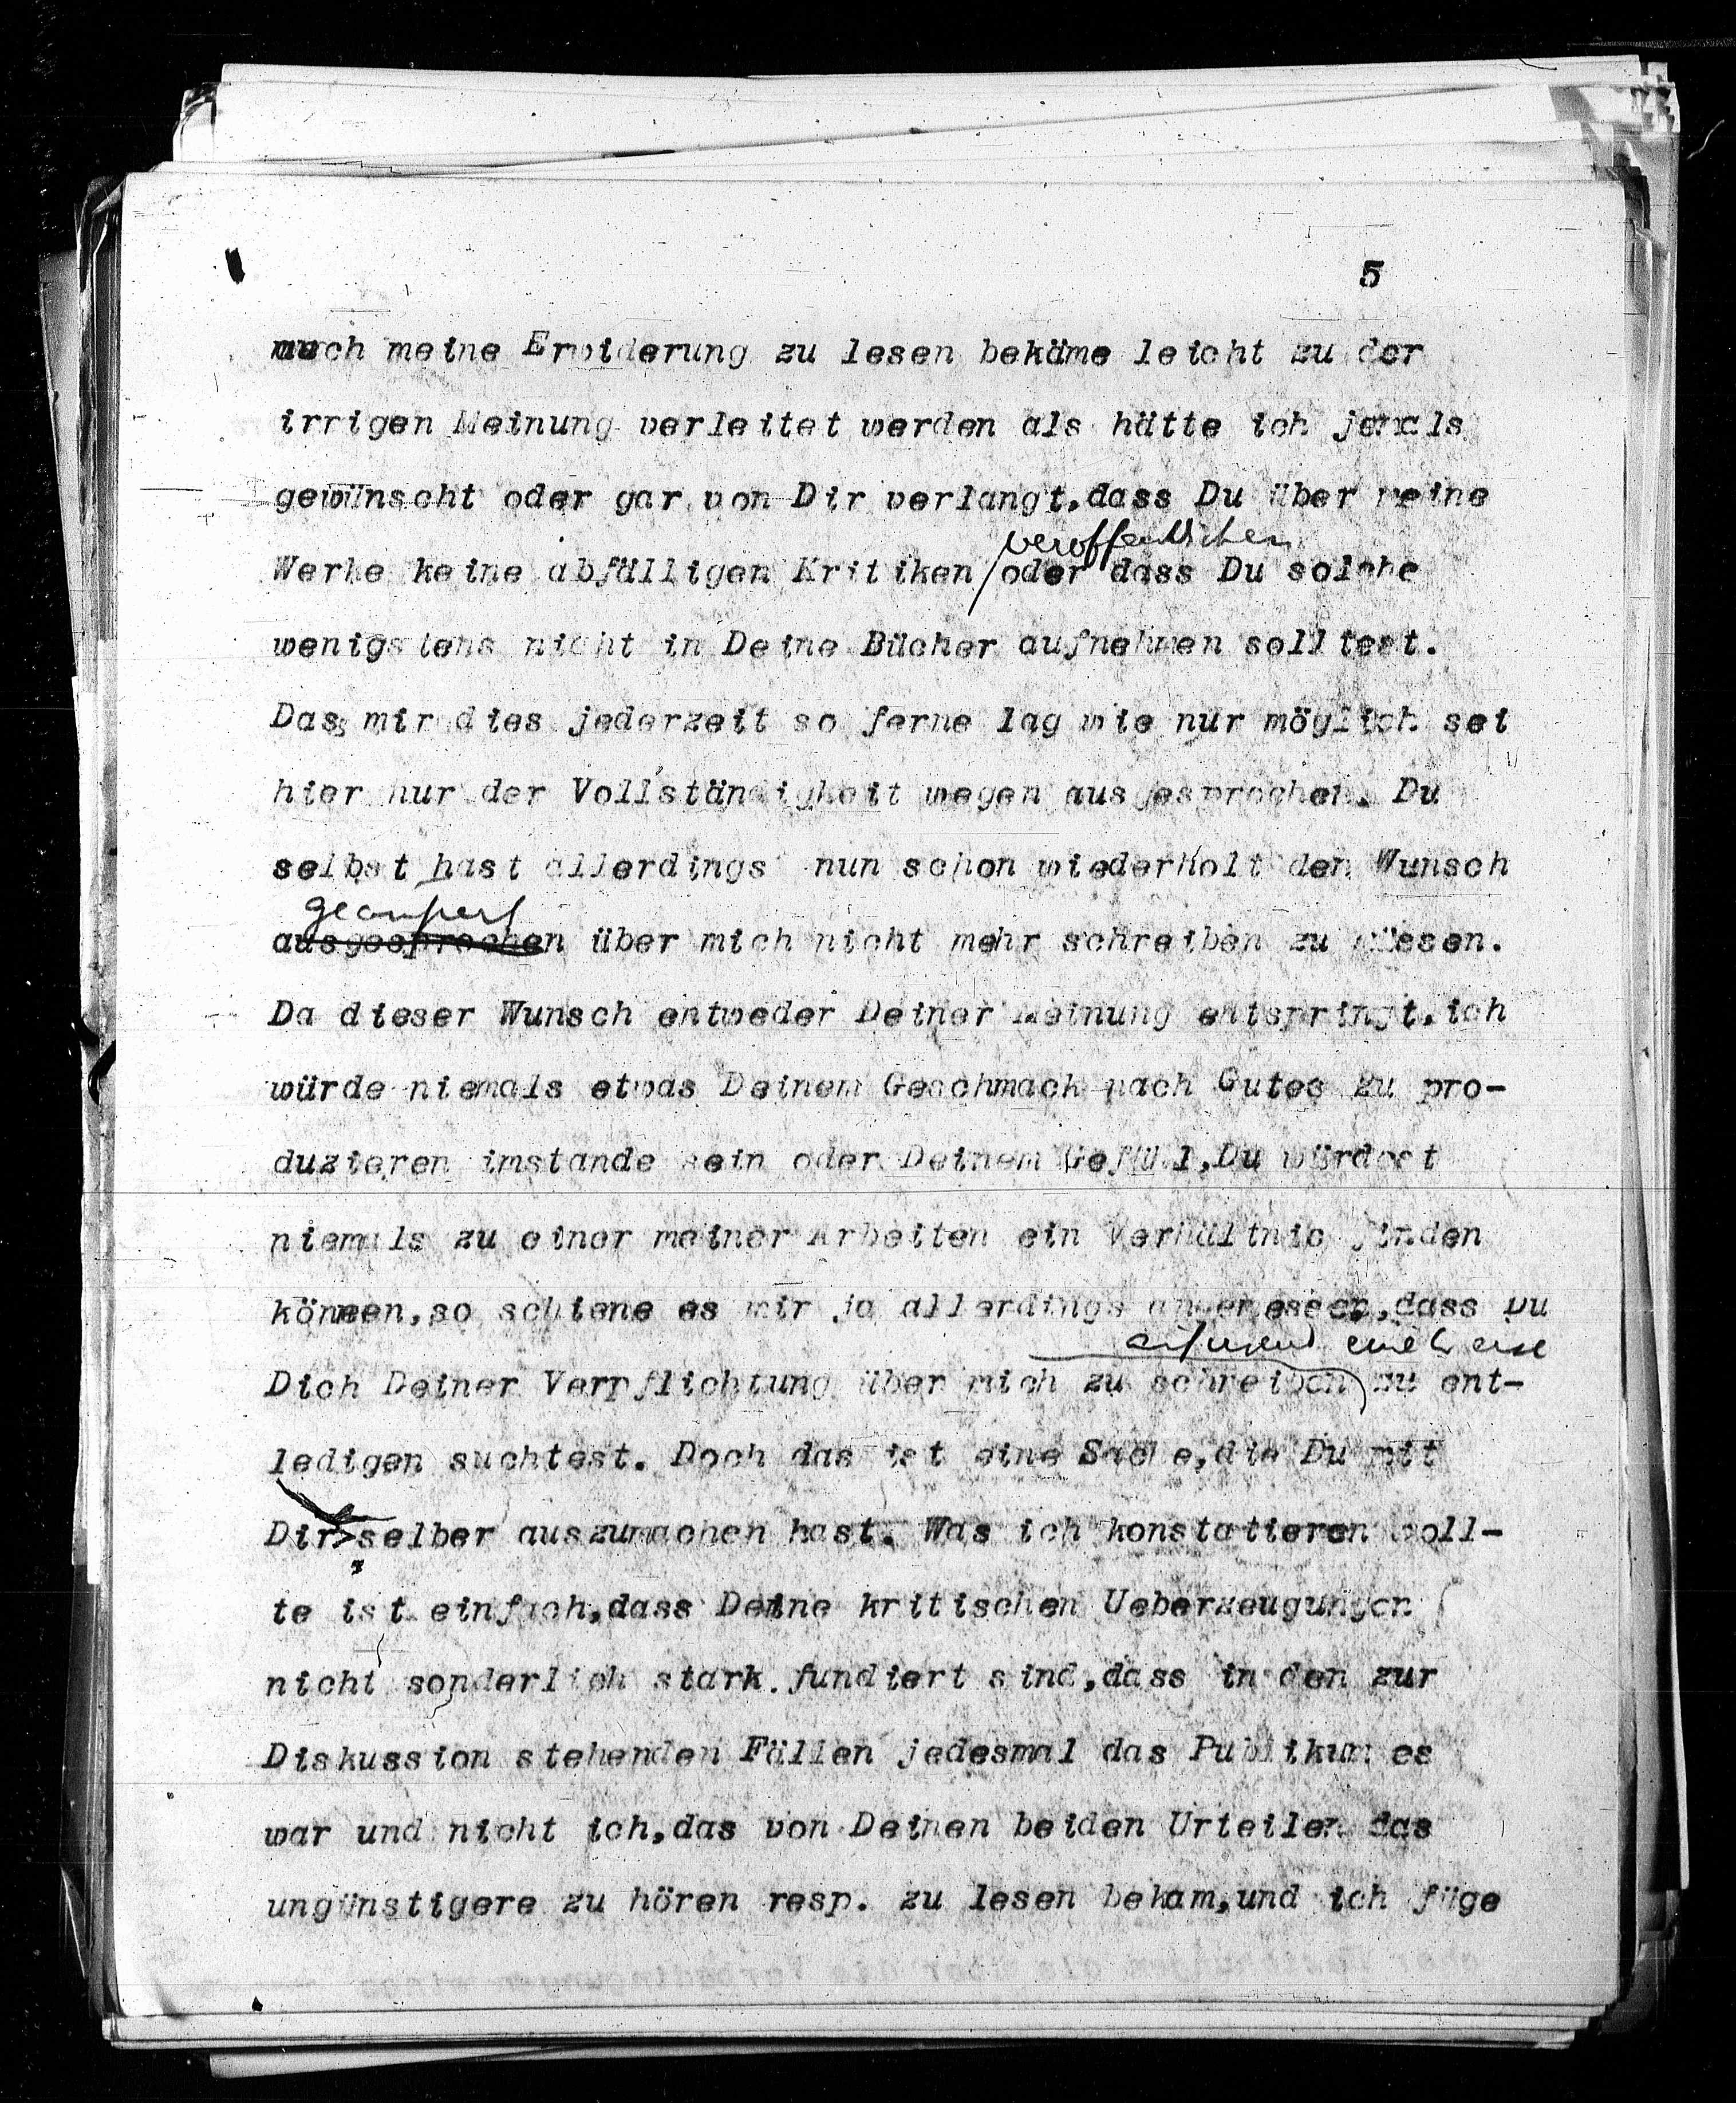 5
auch meine Erwiderung zu lesen bekäme leicht zu der
irrigen Meinung verleitet werden als hätte ich jemals
gewünscht oder gar von Dir verlangt,dass Du über meine
veröffentlichen
Werke keine abfälligen Kritiken/oder dass Du solche
wenigstens nicht in Deine Bücher aufnehmen solltest.
Dass mir dies jederzeit so ferne lag wie nur möglich sei
hier nur der Vollständigkeit wegen ausgesprochen. Du
selbst hast allerdings nun schon wiederholt den Wunsch
geäußert
ausgesprochen über mich nicht mehr schreiben zu müssen.
Da dieser Wunsch entweder Deiner Meinung entspringt,ich
würde niemals etwas Deinem Geschmack nach Gutes zu pro-
duzieren imstande sein oder Deinem Gefühl,Du würdest
niemals zu einer meiner Arbeiten ein Verhältnis finden
können,so schiene es mir ja allerdings angemessen,dass Du
Dich Deiner Verpflichtung über mich zu schreiben zu ent-
ledigen suchtest. Doch das ist eine Sache,die Du mit
Dir selber auszumachen hast. Was ich konstatieren woll-
te ist einfach,dass Deine kritischen Ueberzeugungen
nicht sonderlich stark fundiert sind,dass in den zur
Diskussion stehenden Fällen jedesmal das Publikum es
war und nicht ich,das von Deinen beiden Urteilen das
ungünstigere zu hören resp. zu lesen bekam,und ich füge